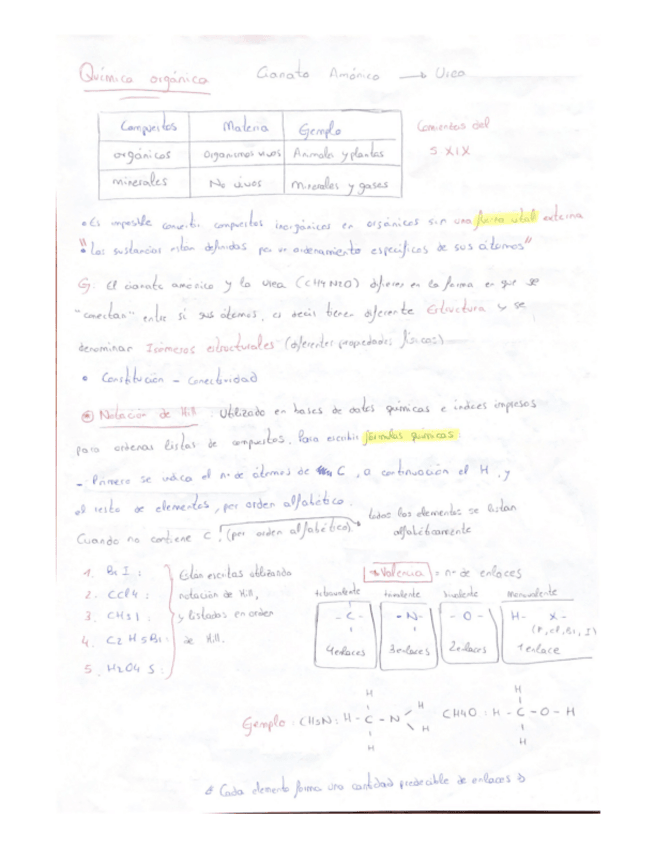 Química orgánica Cianato Amónico → Urea
Compuestos Materia Ejemplo
orgánicos Organismos vivos Animales y plantas
minerales No vivos Minerales y gases
Comientos del
S. XIX
• Es imposible convertir compuestos inorgánicos en orgánicos sin una fuerza vital externa
"• Las sustancias están definidas por un ordenamiento específicos de sus átomos"
Ej. El cianato amónico y la urea (CH4N2O) difieren en la forma en que se
"conectan" entre sí sus átomos, es decir tienen diferente Estructura y se
denominan Isómeros estructurales (diferentes propiedades físicas)
• Constitución - conectividad
Notación de Hill: Utilizado en bases de datos químicas e índices impresos
para ordenar listas de compuestos. Para escribir fórmulas químicas
- Primero se indica el nº de átomos de C, a continuación el H, y
el resto de elementos, por orden alfabético.
Cuando no contiene C, (por orden alfabético) → todos los elementos se listan
alfabéticamente
1. BrI:
2. CCl4:
3. CH3I:
4. C2H5Br:
5. H2O4S:
Están escritas utilizando
notación de Hill,
y listados en orden
de Hill.
Valencia = nº de enlaces
tetravalente trivalente bivalente monovalente
- C - - N - - O - H- X-
(F, Cl, Br, I)
4 enlaces 3 enlaces 2 enlaces 1 enlace
Ejemplo: CH5N: H - C - N H H H H CH4O: H - C - O - H H H
Cada elemento forma una cantidad predecible de enlaces